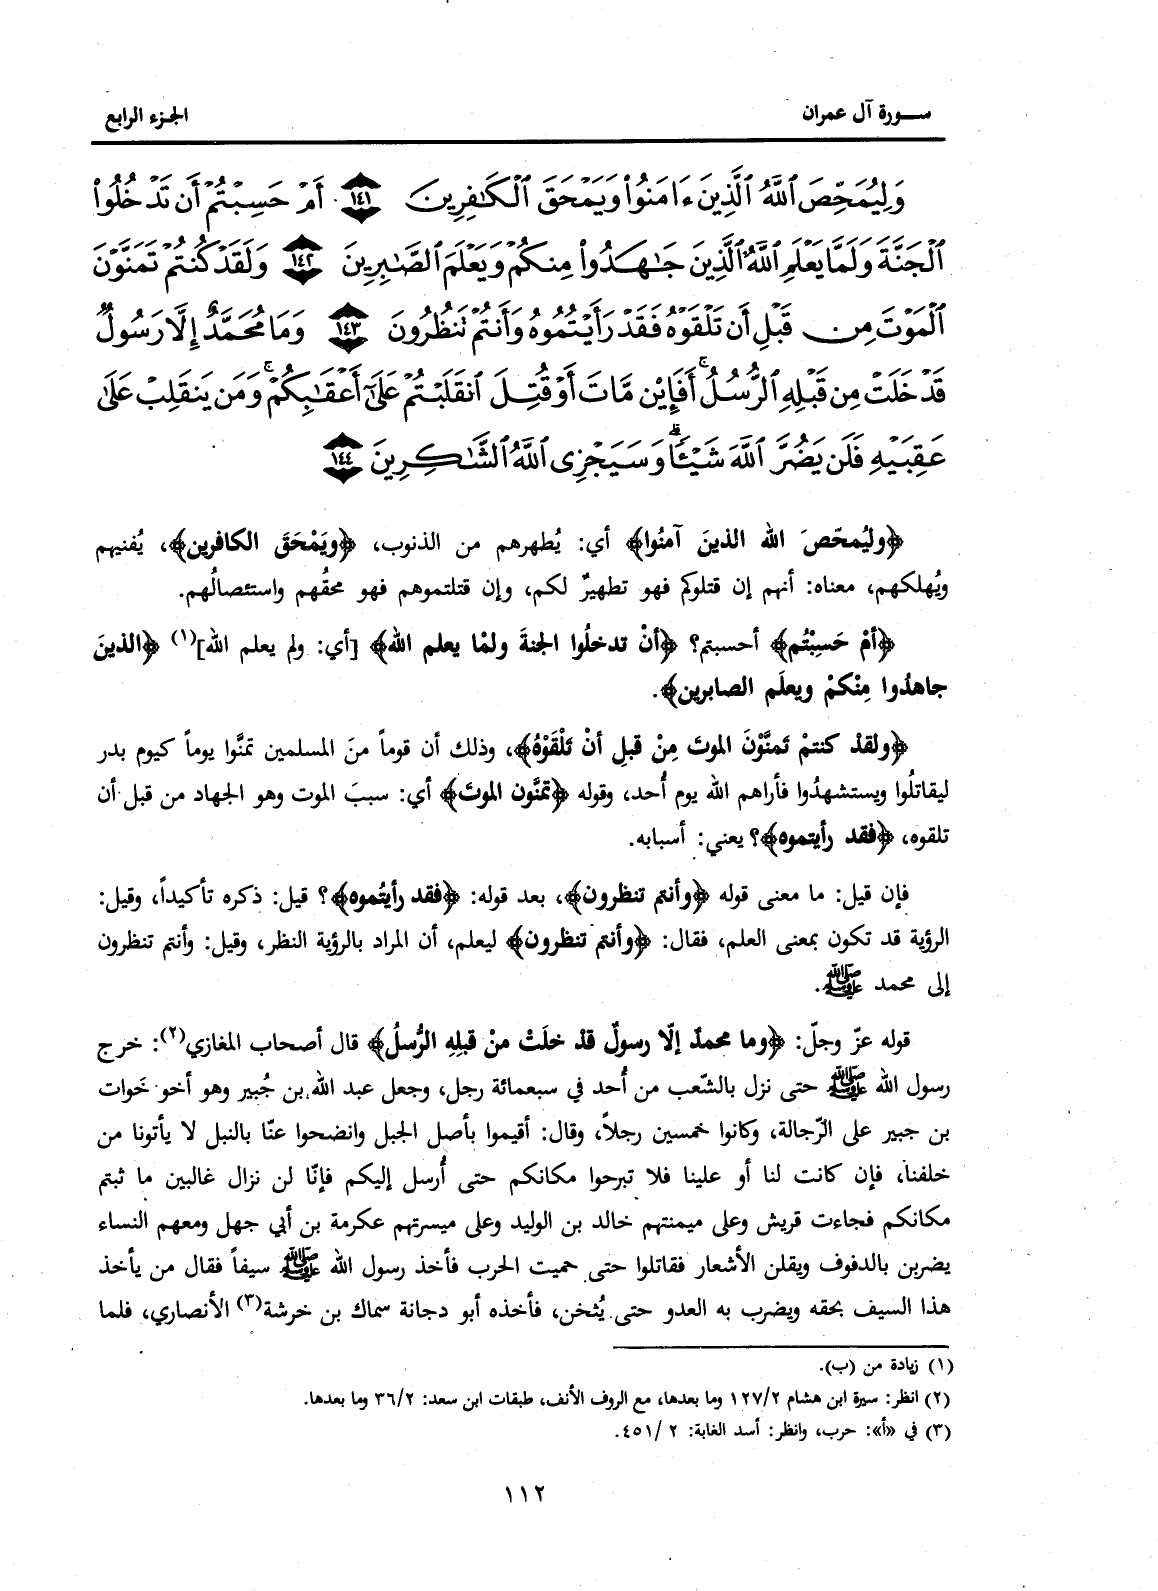 سورة آل عمران
الجزء الرابع
وَلِيُمَحِّصَ ٱللَّهُ ٱلَّذِينَ ءَامَنُواْ وَيَمۡحَقَ ٱلۡكَٰفِرِينَ ١٤١ أَمۡ حَسِبۡتُمۡ أَن تَدۡخُلُواْ
ٱلۡجَنَّةَ وَلَمَّا يَعۡلَمِ ٱللَّهُ ٱلَّذِينَ جَٰهَدُواْ مِنكُمۡ وَيَعۡلَمَ ٱلصَّٰبِرِينَ ١٤٢ وَلَقَدۡ كُنتُمۡ تَمَنَّوۡنَ
ٱلۡمَوۡتَ مِن قَبۡلِ أَن تَلۡقَوۡهُ فَقَدۡ رَأَيۡتُمُوهُ وَأَنتُمۡ تَنظُرُونَ ١٤٣ وَمَا مُحَمَّدٌ إِلَّا رَسُولٌ
قَدۡ خَلَتۡ مِن قَبۡلِهِ ٱلرُّسُلُۚ أَفَإِيْن مَّاتَ أَوۡ قُتِلَ ٱنقَلَبۡتُمۡ عَلَىٰٓ أَعۡقَٰبِكُمۡۚ وَمَن يَنقَلِبۡ عَلَىٰ
عَقِبَيۡهِ فَلَن يَضُرَّ ٱللَّهَ شَيۡـٔٗاۗ وَسَيَجۡزِى ٱللَّهُ ٱلشَّٰكِرِينَ ١٤٤
﴿وليُمحّصَ الله الذينَ آمنُوا﴾ أي: يُطهرهم من الذنوب، ﴿ويَمْحَقَ الكافرين﴾، يُفنيهم
ويُهلكهم، معناه: أنهم إن قتلوكم فهو تطهيرٌ لكم، وإن قتلتموهم فهو محقُهم واستئصالُهم.
﴿أمْ حَسِبْتُم﴾ أحسبتم؟ ﴿أنْ تدخلُوا الجنةَ ولمْا يعلم الله﴾ [أي: ولم يعلم الله](١) ﴿الذينَ
جاهدُوا مِنْكمْ ويعلَم الصابرين﴾.
﴿ولقدْ كنتمْ تَمنَّوْنَ الموتَ مِنْ قبلِ أنْ تَلْقَوْهُ﴾، وذلك أن قوماً منَ المسلمين تمنَّوا يوماً كيوم بدر
ليقاتلُوا ويستشهدُوا فأراهم الله يوم أُحد، وقوله ﴿تمنَّون الموتَ﴾ أي: سببَ الموت وهو الجهاد من قبل أن
تلقوه، ﴿فقد رأيتموه﴾؟ يعني: أسبابه.
فإن قيل: ما معنى قوله ﴿وأنتم تنظرون﴾، بعد قوله: ﴿فقد رأيتُموه﴾؟ قيل: ذكره تأكيداً، وقيل:
الرؤية قد تكون بمعنى العلم، فقال: ﴿وأنتم تنظرون﴾ ليعلم، أن المراد بالرؤية النظر، وقيل: وأنتم تنظرون
إلى محمد ﷺ.
قوله عزّ وجلّ: ﴿وما محمدٌ إلّا رسولٌ قدْ خلَتْ منْ قبلِهِ الرُّسلُ﴾ قال أصحاب المغازي(٢): خرج
رسول الله ﷺ حتى نزل بالشّعب من أُحد في سبعمائة رجل، وجعل عبد الله بن جُبير وهو أخو خَوات
بن جبير على الرّجالة، وكانوا خمسين رجلاً، وقال: أقيموا بأصل الجبل وانضحوا عنّا بالنبل لا يأتونا من
خلفنا، فإن كانت لنا أو علينا فلا تبرحوا مكانكم حتى أُرسل إليكم فإنّا لن نزال غالبين ما ثبتم
مكانكم فجاءت قريش وعلى ميمنتهم خالد بن الوليد وعلى ميسرتهم عكرمة بن أبي جهل ومعهم النساء
يضربن بالدفوف ويقلن الأشعار فقاتلوا حتى حميت الحرب فأخذ رسول الله ﷺ سيفاً فقال من يأخذ
هذا السيف بحقه ويضرب به العدو حتى يُثخن، فأخذه أبو دجانة سماك بن خرشة(٣) الأنصاري، فلما
(١) زيادة من (ب).
(٢) انظر: سيرة ابن هشام ١٢٧/٢ وما بعدها، مع الروف الأنف، طبقات ابن سعد: ٣٦/٢ وما بعدها.
(٣) في «أ»: حرب، وانظر: أسد الغابة: ٢ /٤٥١.
١١٢